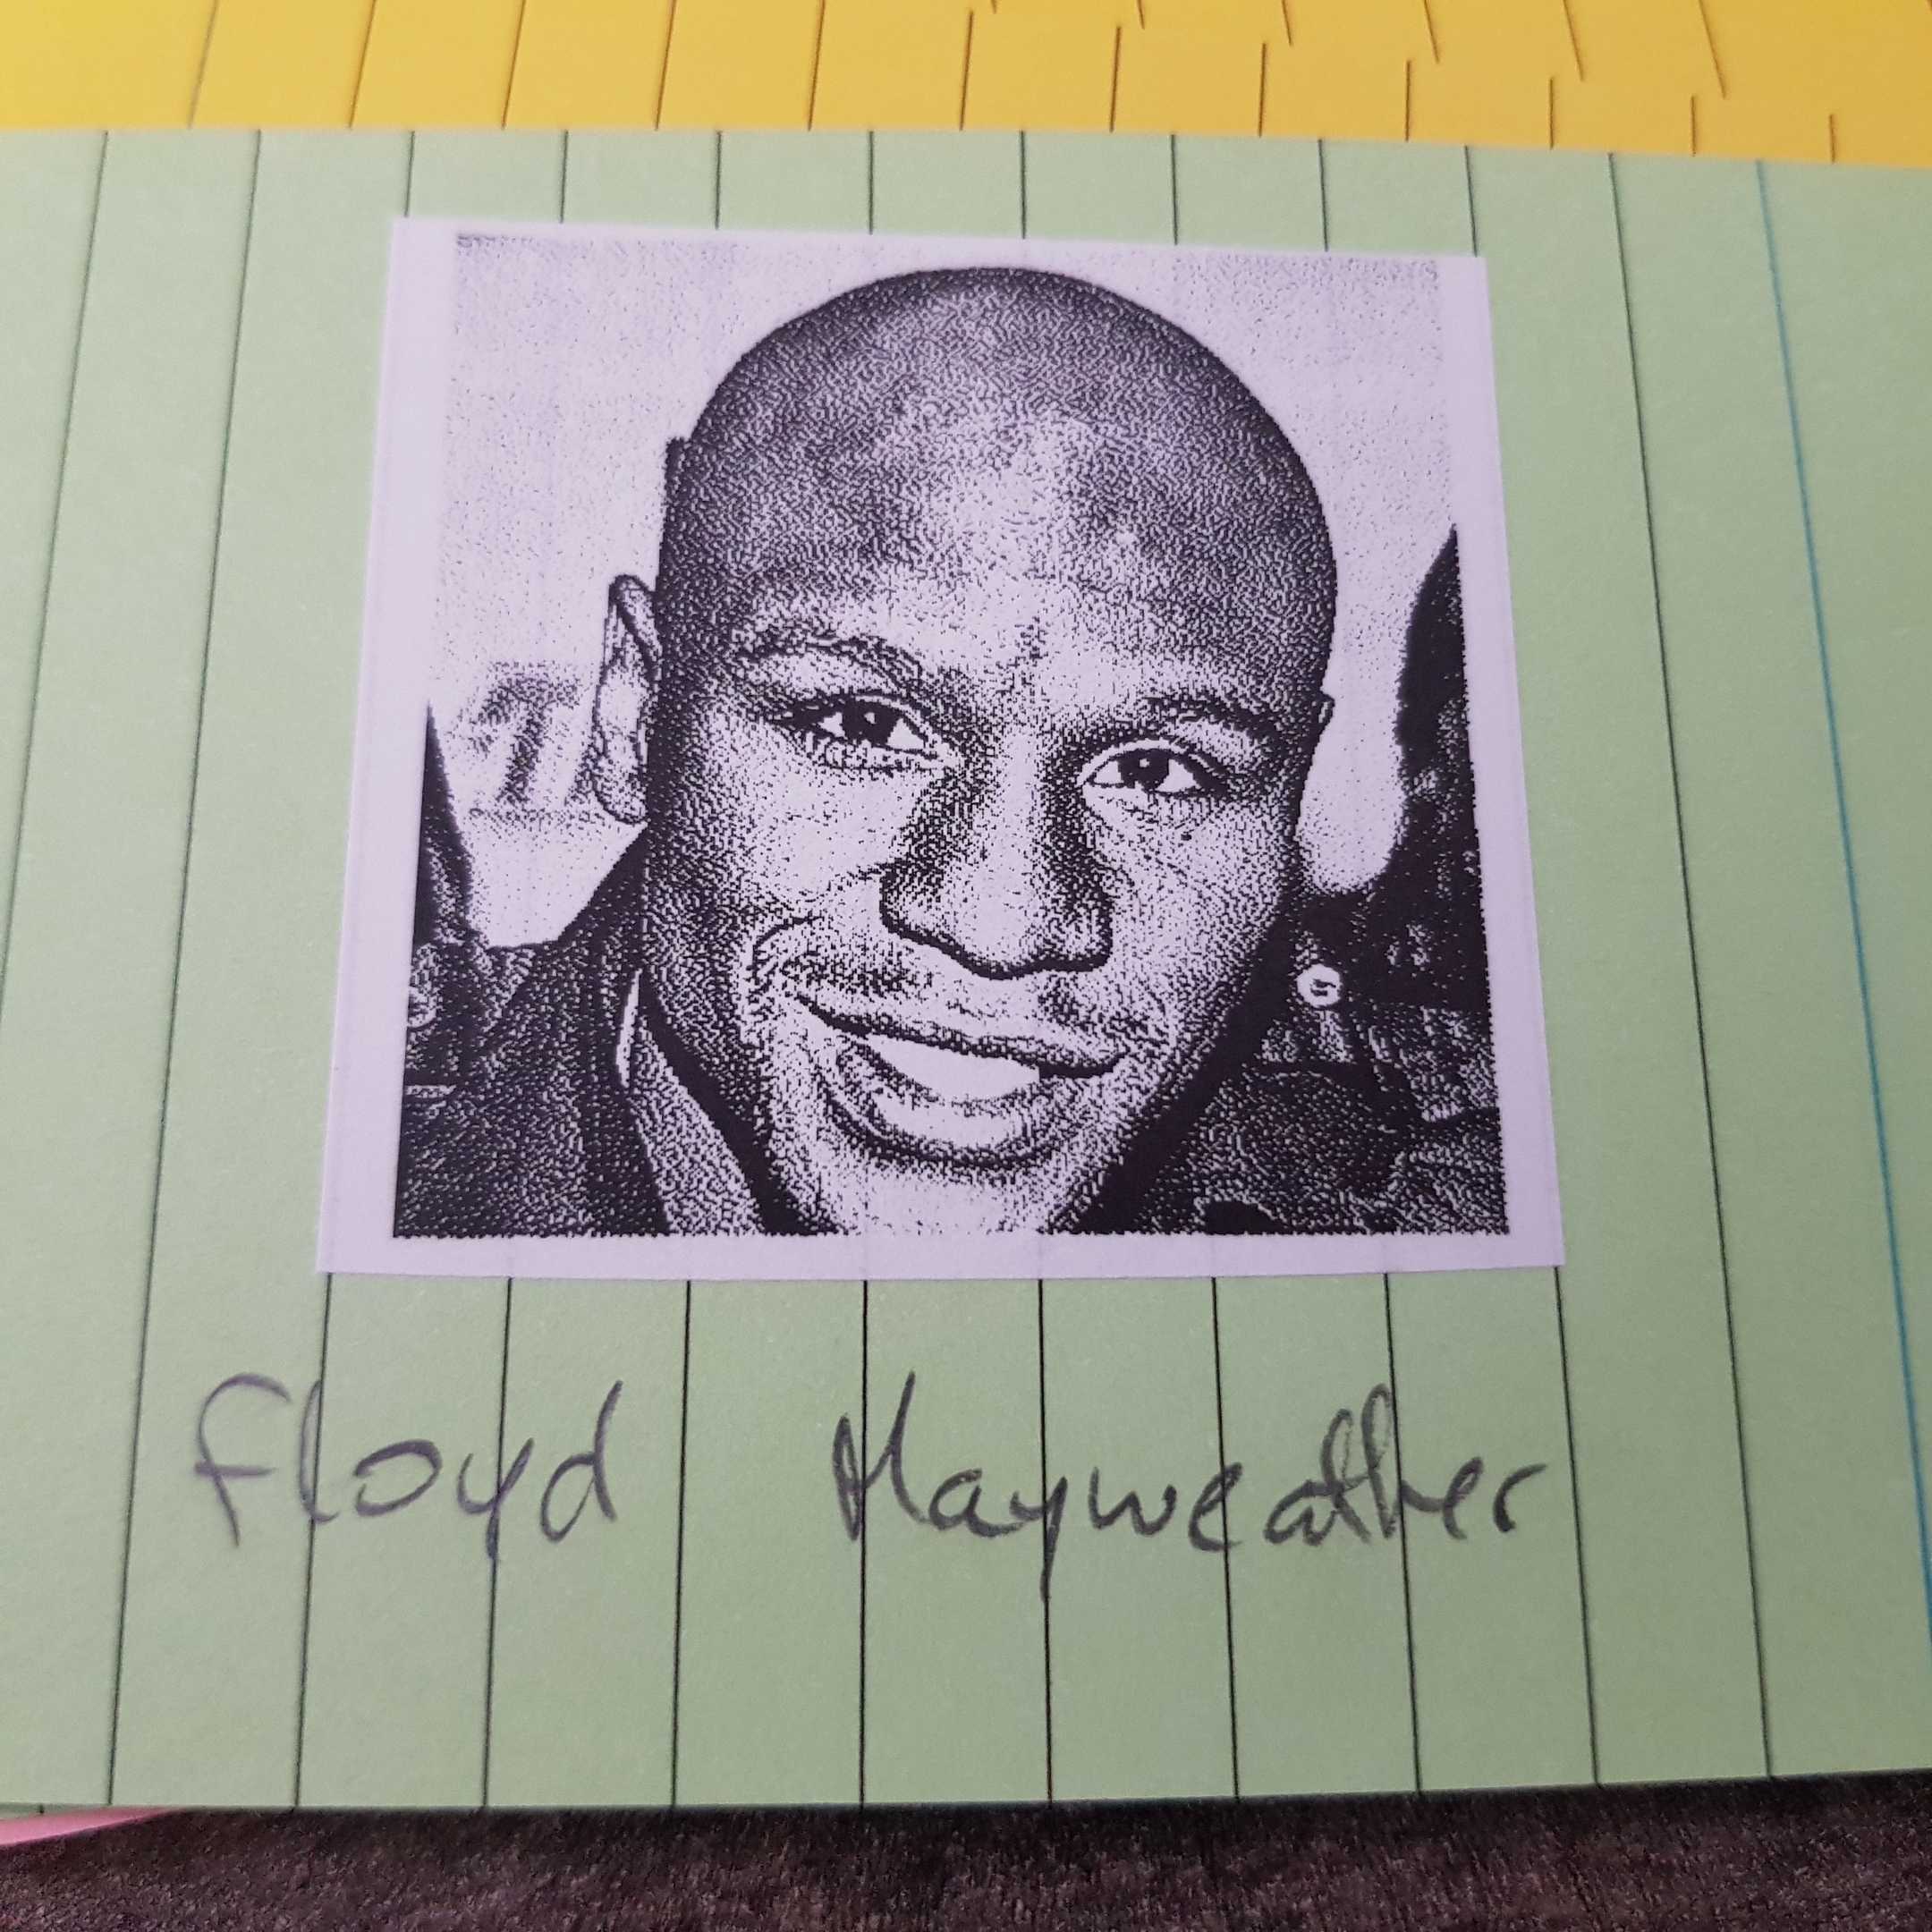 Floyd Mayweather